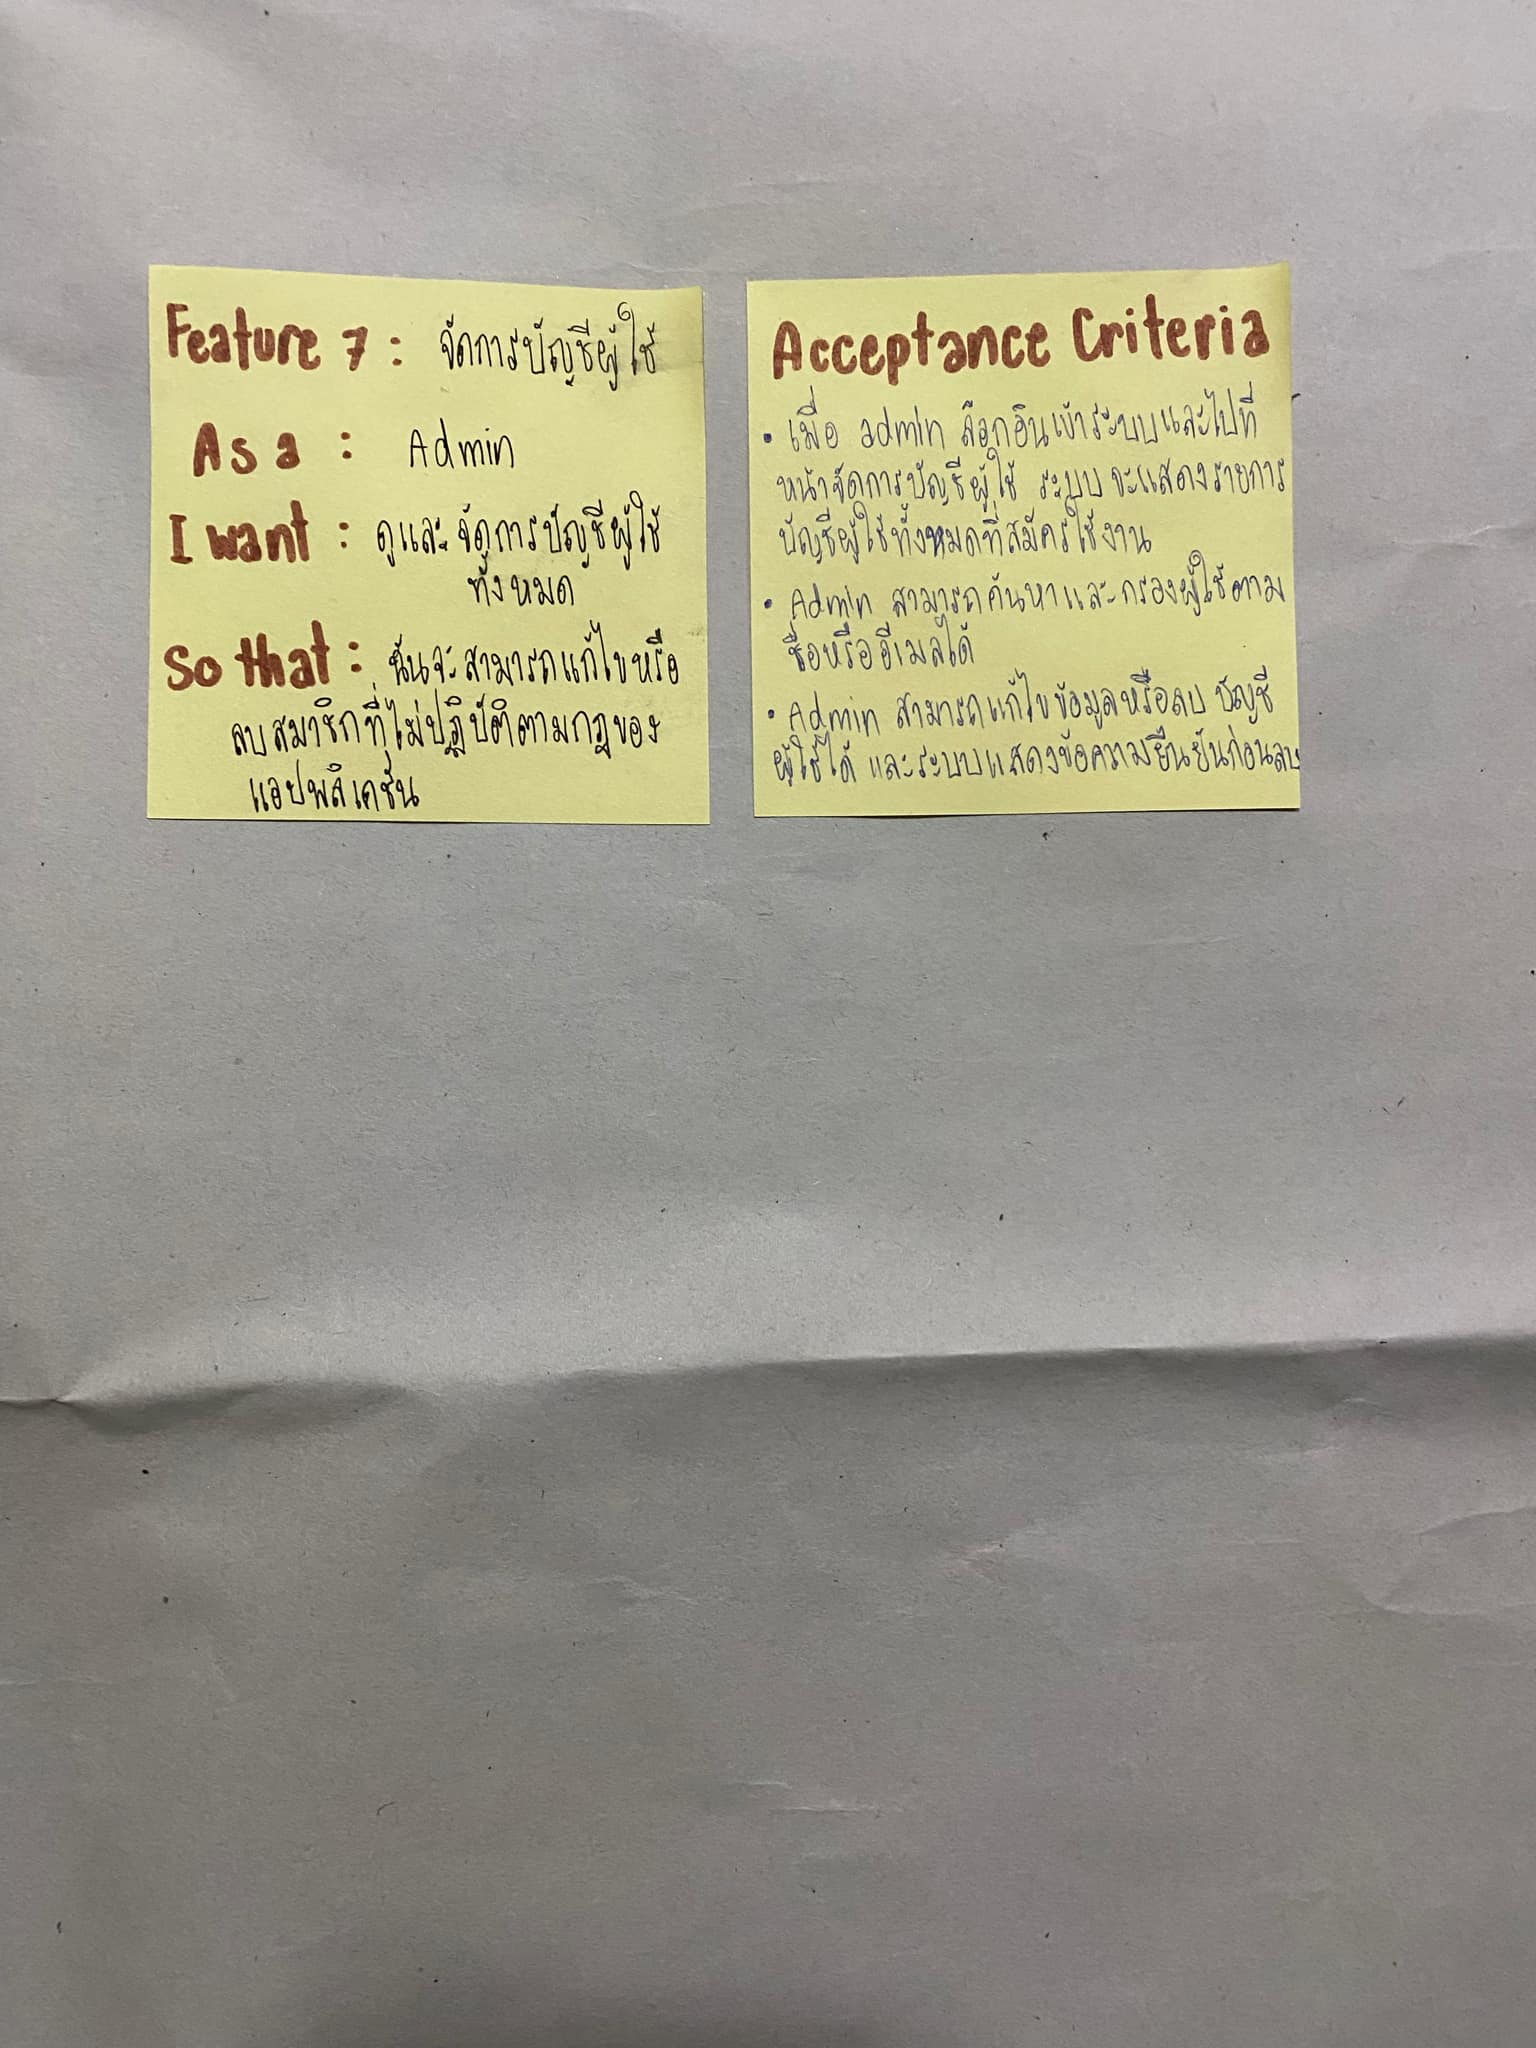 Feature 7 : จัดการบัญชีผู้ใช้
As a : Admin
I want : ดูและจัดการบัญชีผู้ใช้
ทั้งหมด
So that : ฉันจะสามารถแก้ไขหรือ
ลบสมาชิกที่ไม่ปฏิบัติตามกฎของ
แอปพลิเคชั่น
Acceptance Criteria
• เมื่อ admin ล็อกอินเข้าระบบและไปที่
หน้าจัดการบัญชีผู้ใช้ ระบบจะแสดงรายการ
บัญชีผู้ใช้ทั้งหมดที่สมัครใช้งาน
• Admin สามารถค้นหาและกรองผู้ใช้ตาม
ชื่อหรืออีเมลได้
• Admin สามารถแก้ไขข้อมูลหรือลบบัญชี
ผู้ใช้ได้ และระบบแสดงข้อความยืนยันก่อนลบ